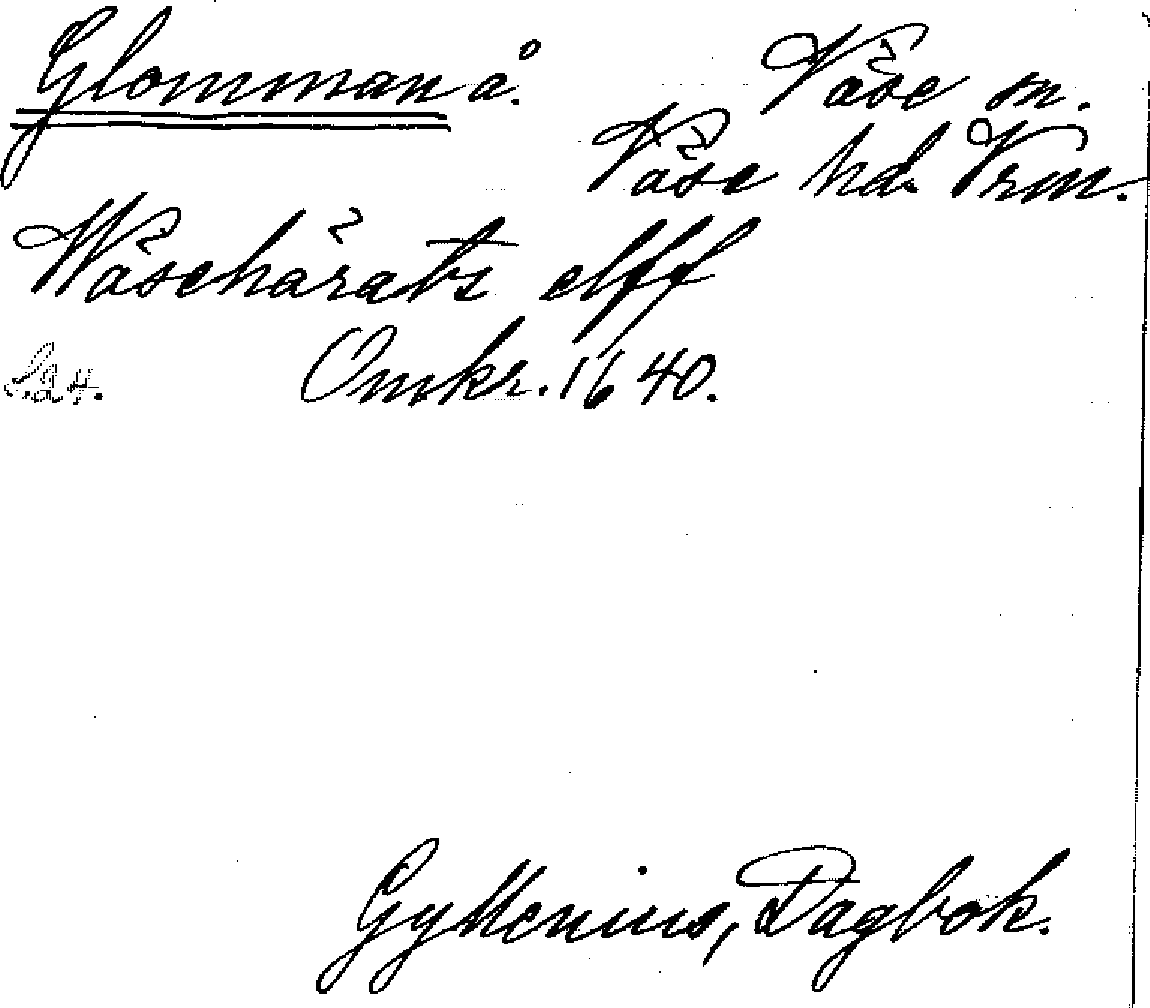 Glomman å. Väse sn.
Väse hd. Vrm.
Wäsehärats elff
S. 24. Omkr. 1640.
Gyllenius, Dagbok.